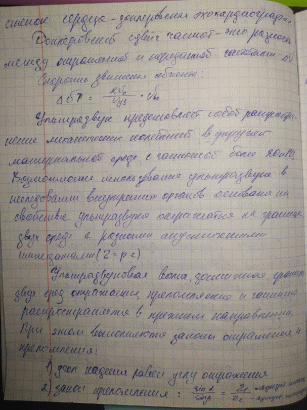 стенок сердца - доплеровская эхокардиография
Доплеровский сдвиг частот - это разность
между отраженной и
Скорость движения
Ультразвук представляет собой распростра-
нение механических колебаний в упругой
материальной среде с частотой более 20 кГц.
Возможность использования ультразвука в
исследовании внутренних органов основана на
свойстве ультразвука отражаться на границе
двух сред с разными акустическими
импедансами (Z = ρ c)
Ультразвуковая волна, достигшая границы
двух сред отражении, преломлении и
распространяется в прежнем направлении.
При этом выполняются законы отражения и
преломления:
1) угол падения равен углу отражения
2) закон преломления: